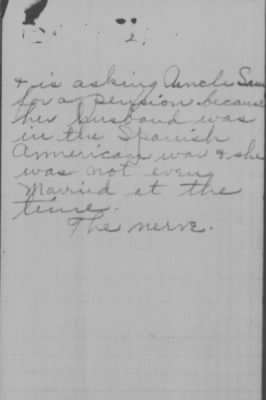 2.
& is asking Uncle Sam
for a pension because
her husband was
in the Spanish
Ammerican war & she
was not even
Married at the
time.
The nerve.